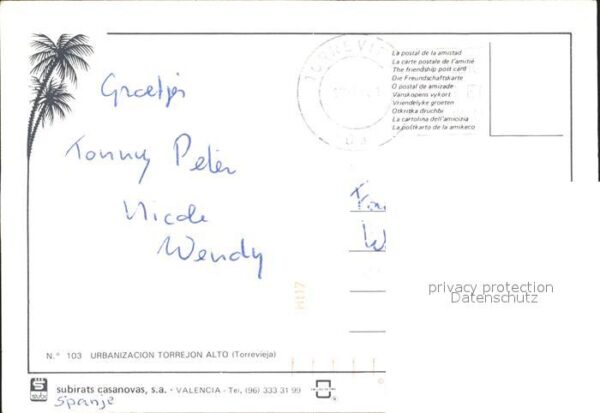 TORREVIEJA
La postal de la amistad
La carte postale de l'amitié
The friendship post card
Die Freundschaftskarte
O postal de amizade
Vänskapens vykort
Vriendelyke groeten
Otkritka druchbi
La cartolina dell'amicizia
La poŝtkarto de la amikeco
Groetjes
Tonny Peter
Nicole
Wendy
Fa
W
privacy protection
Datenschutz
N.º 103 URBANIZACION TORREJON ALTO (Torrevieja)
subirats casanovas, s.a. • VALENCIA - Tel. (96) 333 31 99
Spanje